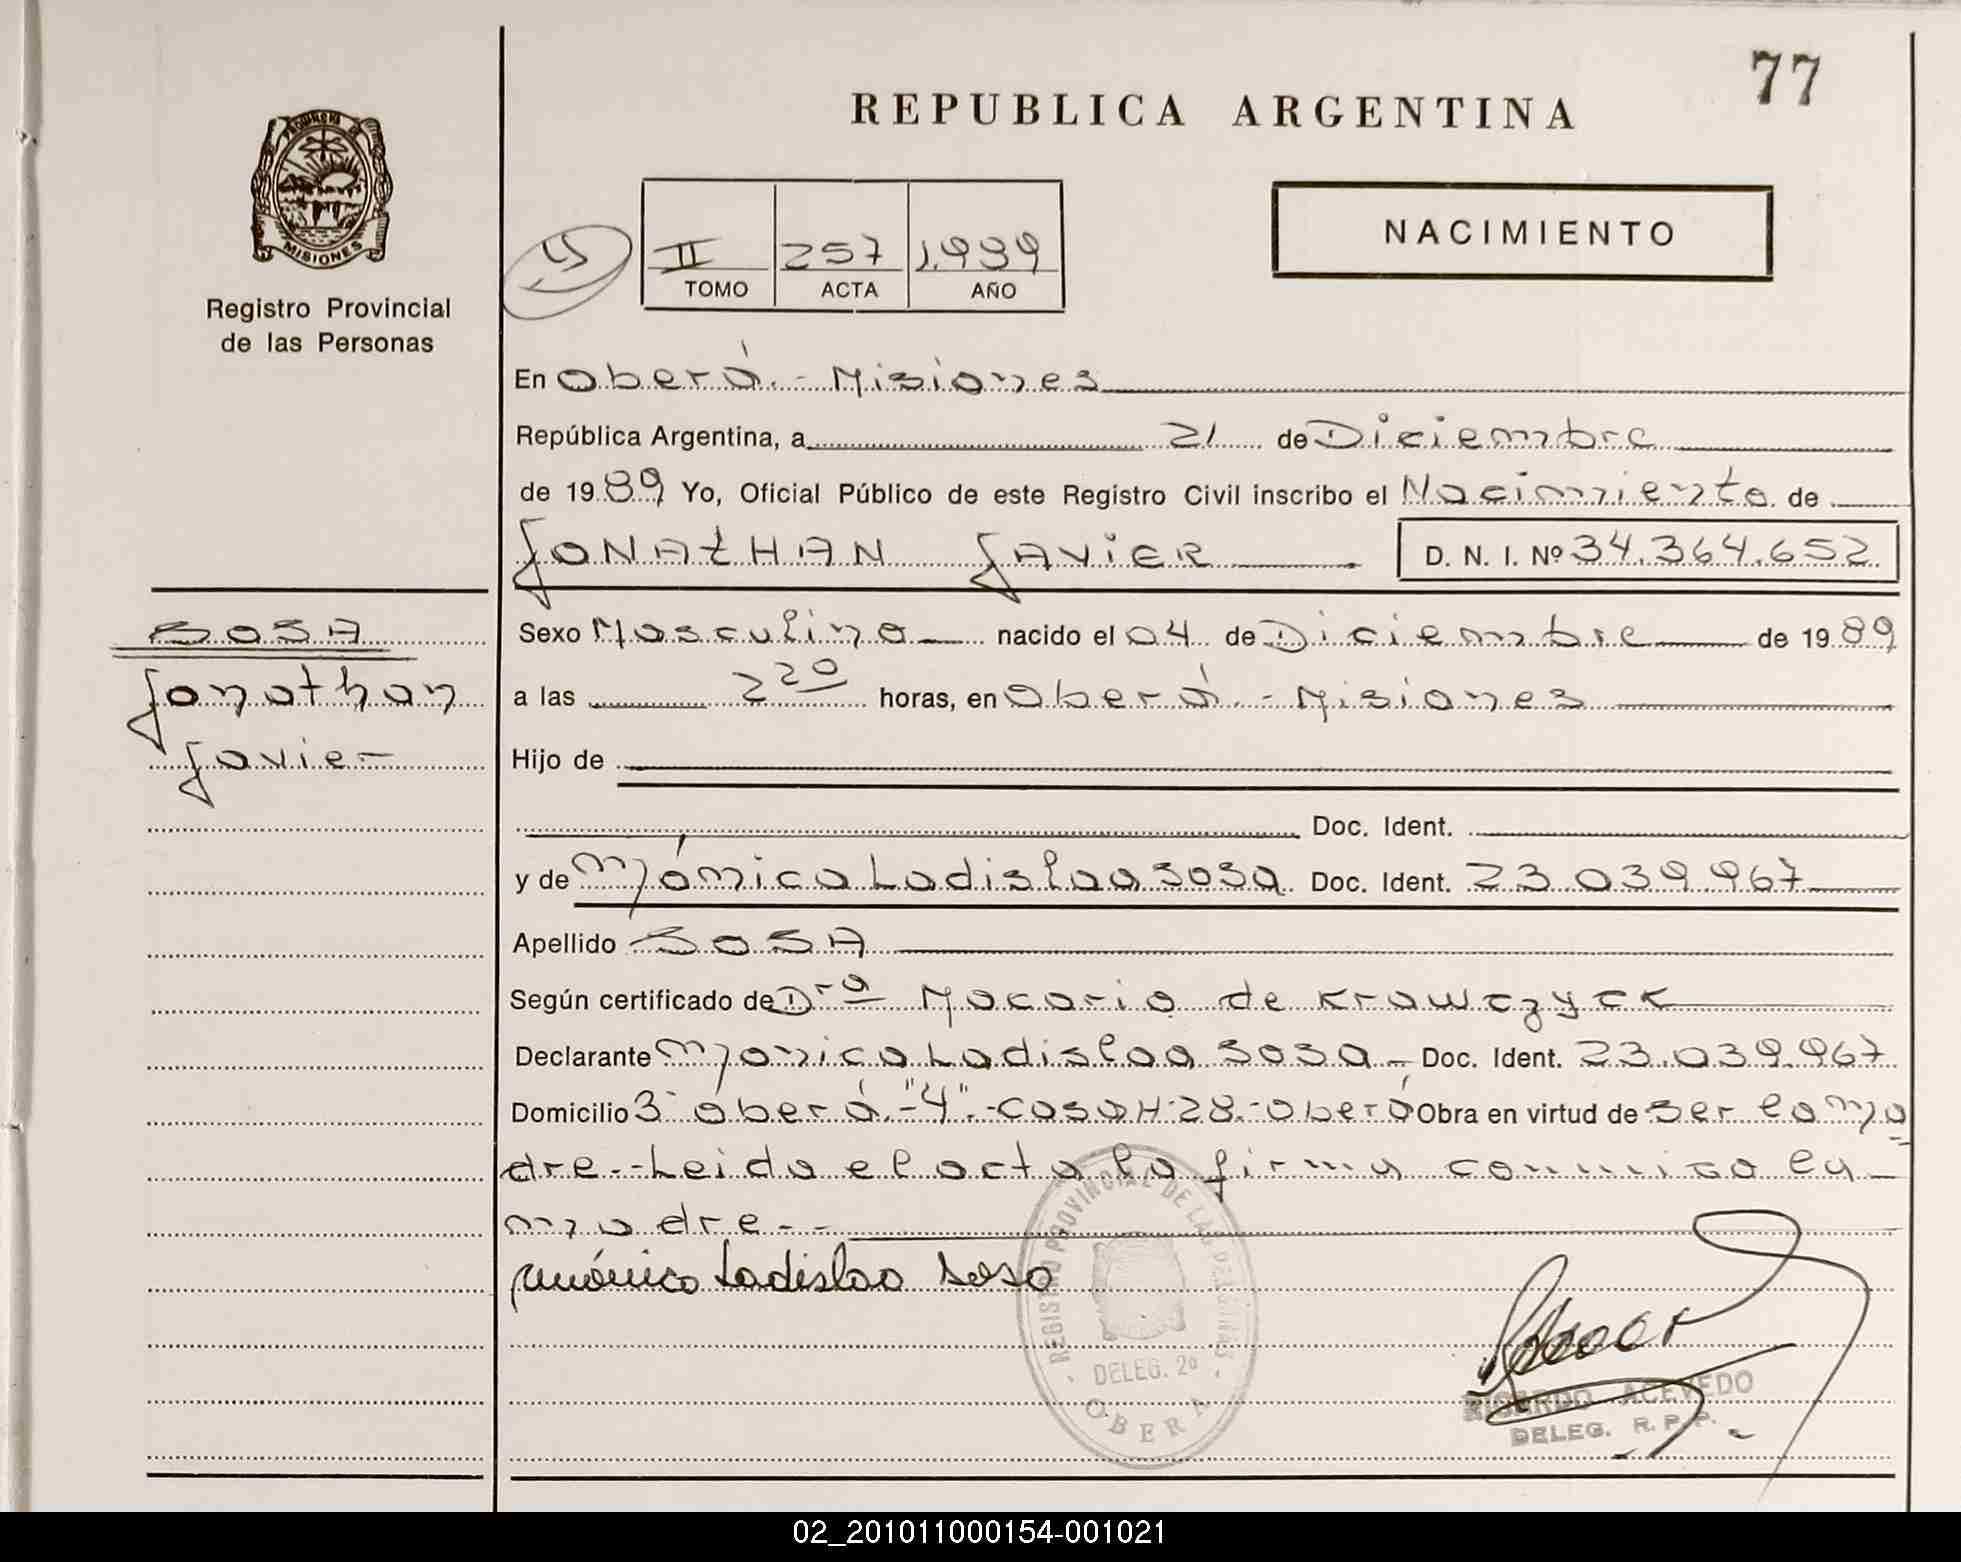 77
REPUBLICA ARGENTINA
PROVINCIA DE
MISIONES
Registro Provincial
de las Personas
NACIMIENTO
II 257 1.989
TOMO ACTA AÑO
En Oberá.- Misiones
República Argentina, a 21 de Diciembre
de 1989 Yo, Oficial Público de este Registro Civil inscribo el Nacimiento de
JONAtHAN JAViER D. N. I. Nº 34.364.652
SOSA
Jonathan
Javier
Sexo Masculino nacido el 04 de Diciembre de 1989
a las 2 20 horas, en Oberá.- Misiones
Hijo de
Doc. Ident.
y de Mónica Ladislaa Sosa Doc. Ident. 23.039.967
Apellido SOSA
Según certificado de Dra Macario de Krawczyck
Declarante Monica Ladislaa Sosa Doc. Ident. 23.039.967
Domicilio 3 Oberá.-"4".-Casa H 28.-Oberá Obra en virtud de ser la ma
dre.-Leida el acta la firma conmigo la
madre.-
Mónica Ladislaa Sosa
REGISTRO PROVINCIAL DE LAS PERSONAS
DELEG. 2º
OBERA
RICARDO ACEVEDO
DELEG. R. P. P.
02_201011000154-001021